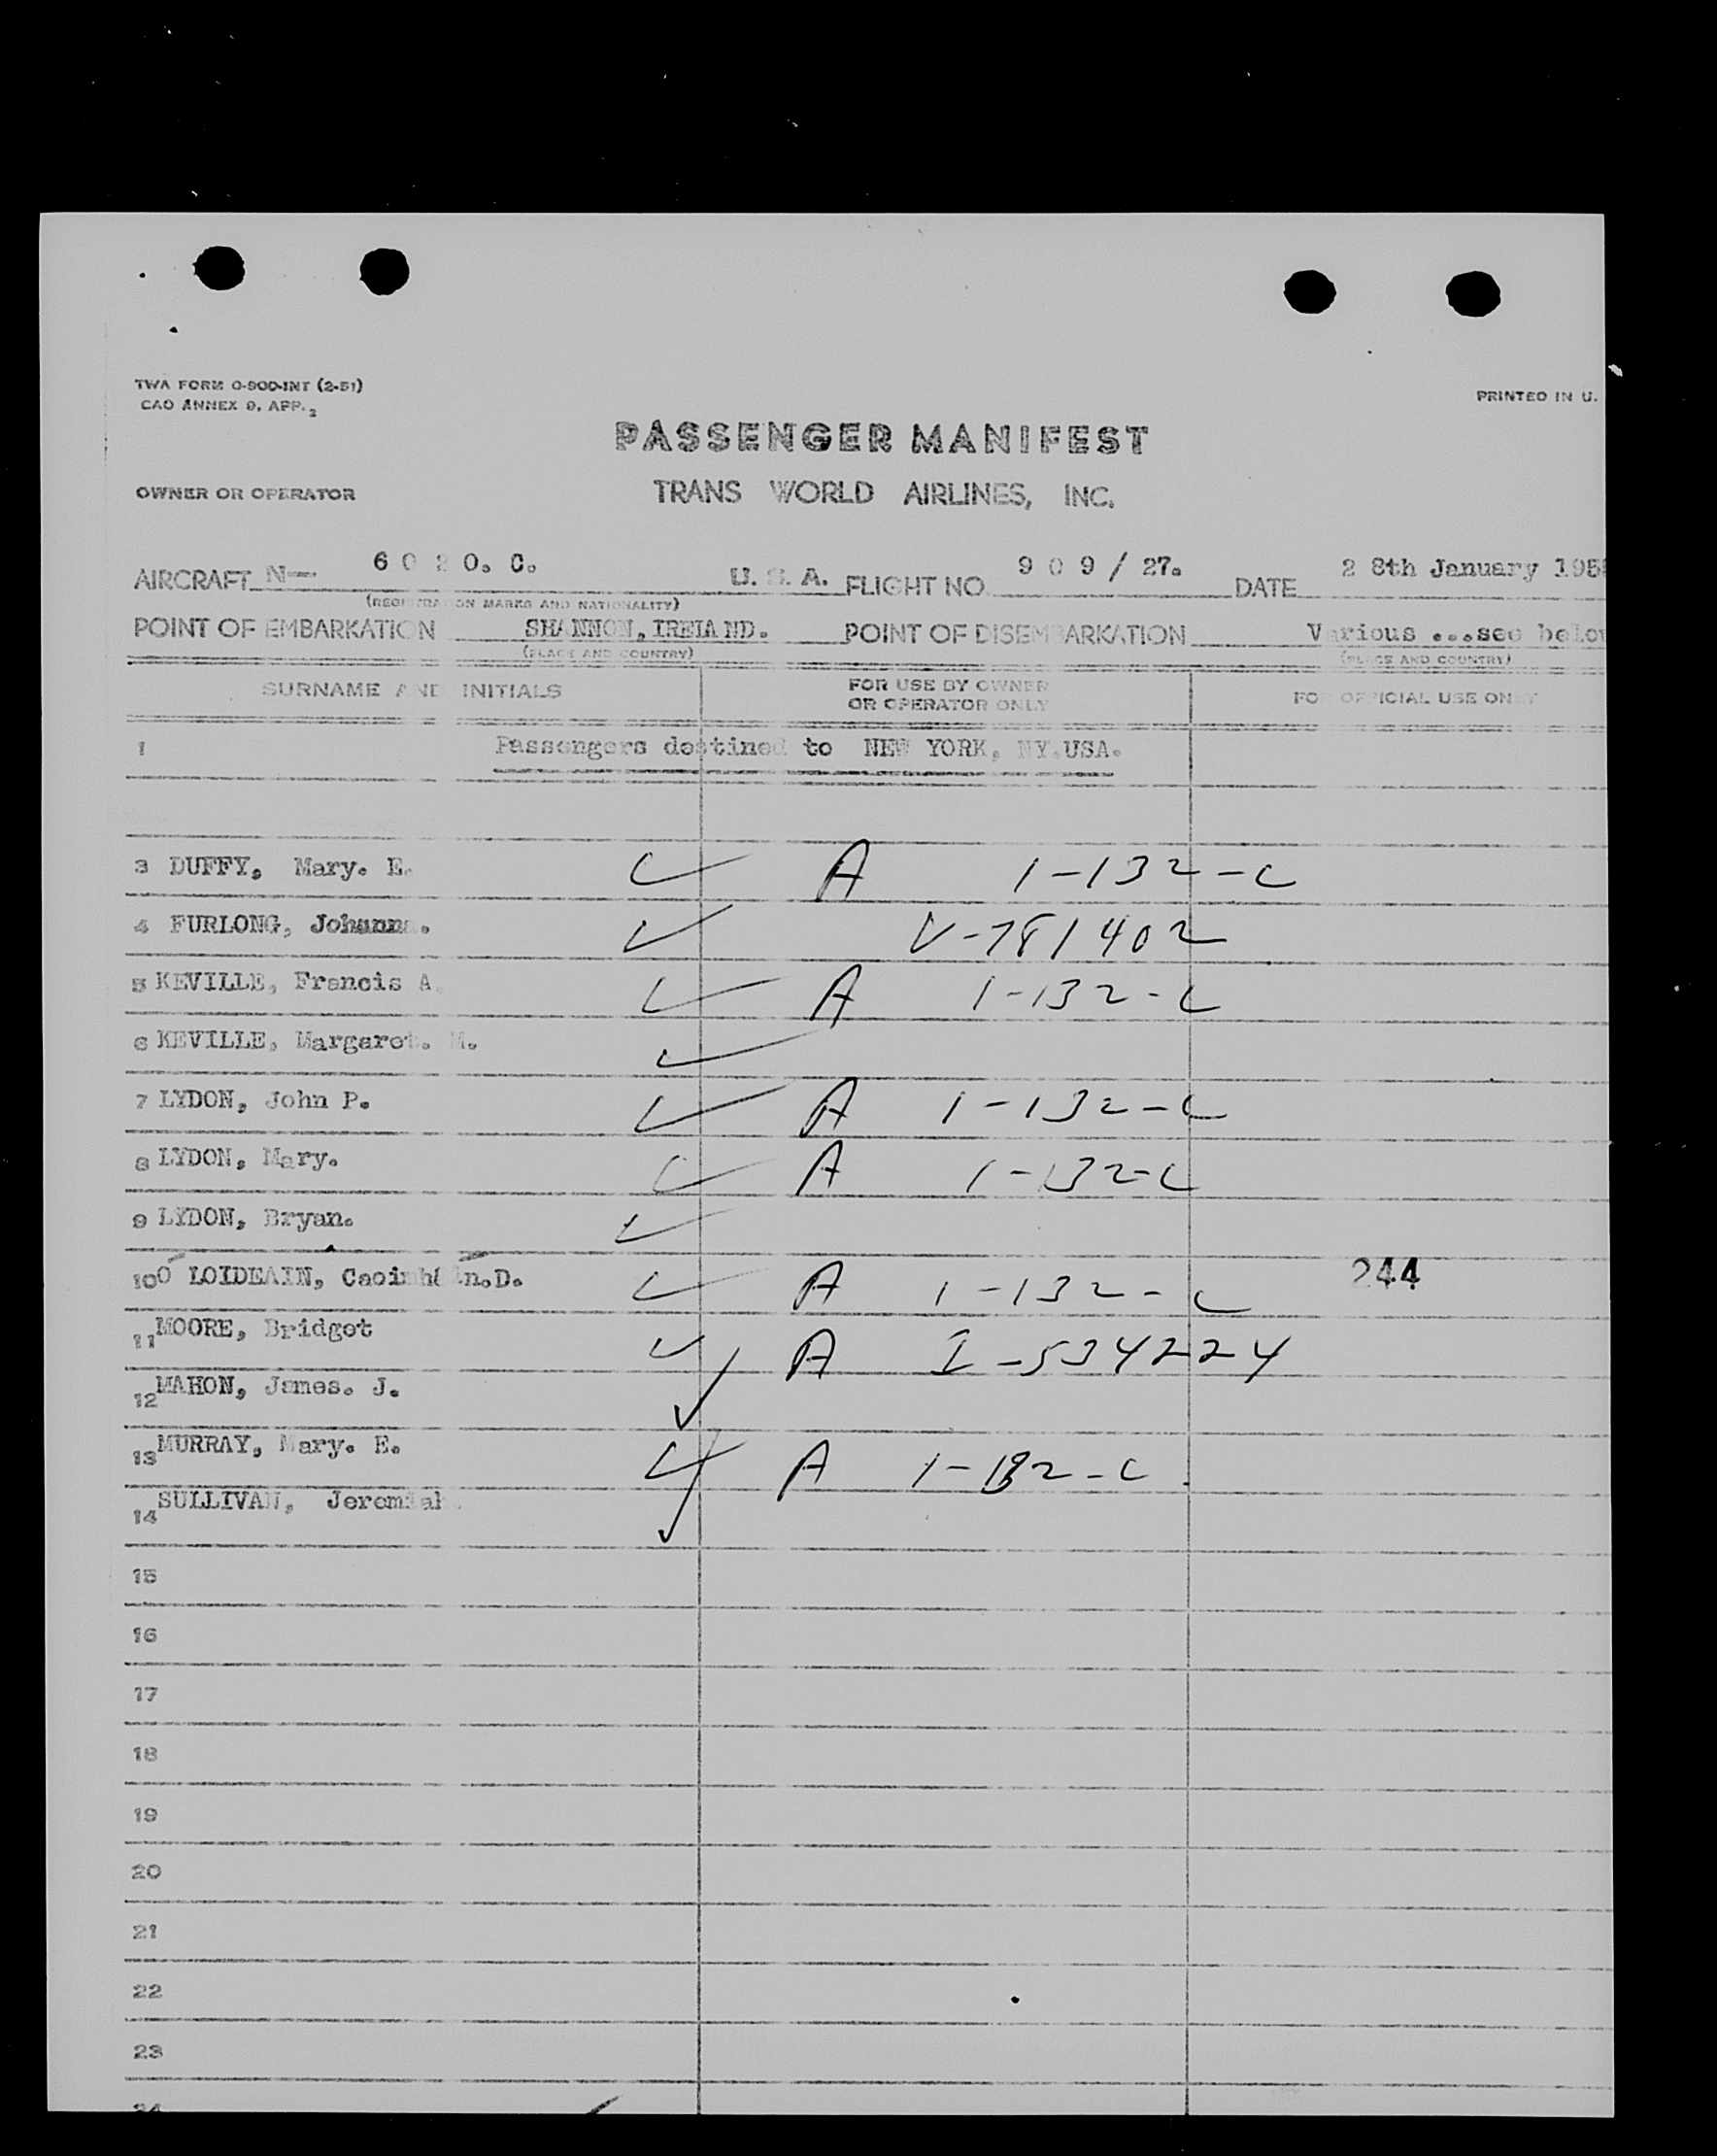 TWA FORM O-900-INT (2-51)
CAO ANNEX 9, APP. 2
PRINTED IN U.
PASSENGER MANIFEST
OWNER OR OPERATOR TRANS WORLD AIRLINES, INC.
AIRCRAFT N- 6 0 2 0. C. U. S. A. FLIGHT NO. 9 0 9 / 27. DATE 2 8th January 195
(REGISTRATION MARKS AND NATIONALITY)
POINT OF EMBARKATION SHANNON, IRELAND. POINT OF DISEMBARKATION Various ...see below
(PLACE AND COUNTRY) (PLACE AND COUNTRY)
SURNAME AND INITIALS FOR USE BY OWNER OR OPERATOR ONLY FOR OFFICIAL USE ONLY
1 Passengers destined to NEW YORK, NY.USA.
3 DUFFY, Mary. E. A 1-132-C
4 FURLONG, Johanna. V-781402
5 KEVILLE, Francis A. A 1-132-C
6 KEVILLE, Margaret. M.
7 LYDON, John P. A 1-132-C
8 LYDON, Mary. A 1-132-C
9 LYDON, Bryan.
10 O LOIDEAIN, Caoimhín.D. A 1-132-C 244
11 MOORE, Bridget A I-534224
12 MAHON, James. J.
13 MURRAY, Mary. E. A 1-132-C
14 SULLIVAN, Jeremiah.
15
16
17
18
19
20
21
22
23
24